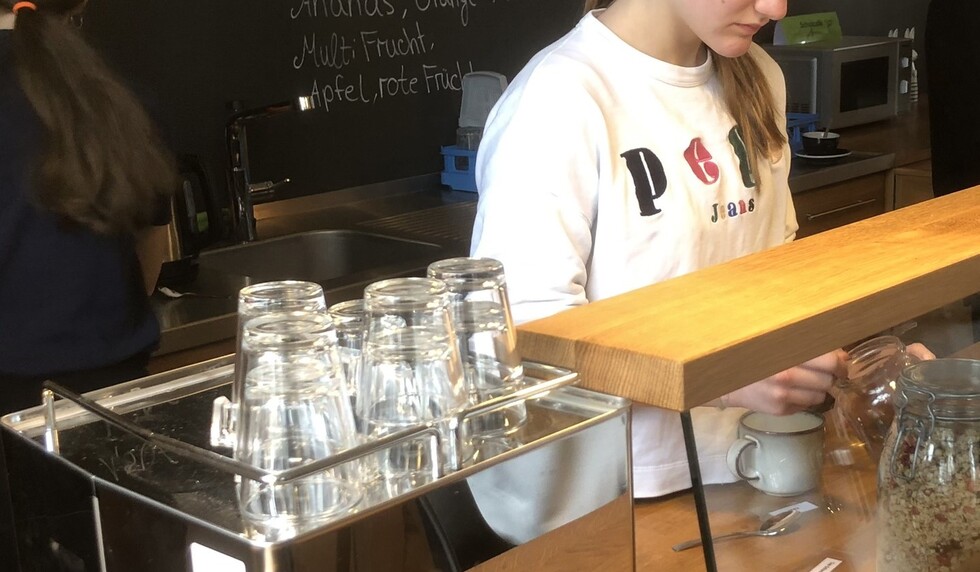 Ananas, Orange
Multi Frucht,
Apfel, rote Frücht
Pe
Jeans